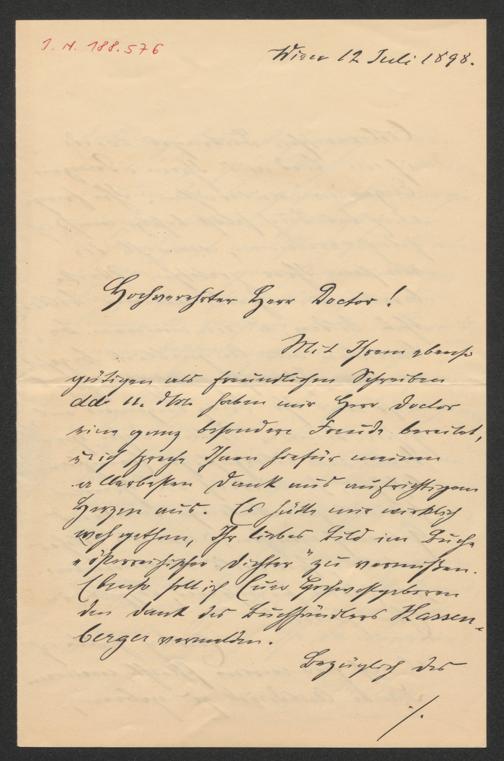 I. N. 188.576
Wien 12 Juli 1898.
Hochverehrter Herr Doctor!
Mit Ihrem ebenso
gütigen als freundlichen Schreiben
dd. 11. dM. haben mir Herr Doctor
eine ganz besondere Freude bereitet,
u. ich spreche Ihnen hiefür meinen
allerbesten Dank aus aufrichtigem
Herzen aus. Es hätte mir wirklich
weh gethan, Ihr liebes Bild im Buche
„österreichischer Dichter" zu vermißen.
Ebenso soll ich Euer Hochwohlgeboren
den Dank des Buchhändlers Hassen-
berger vermelden.
Bezüglich des
./.